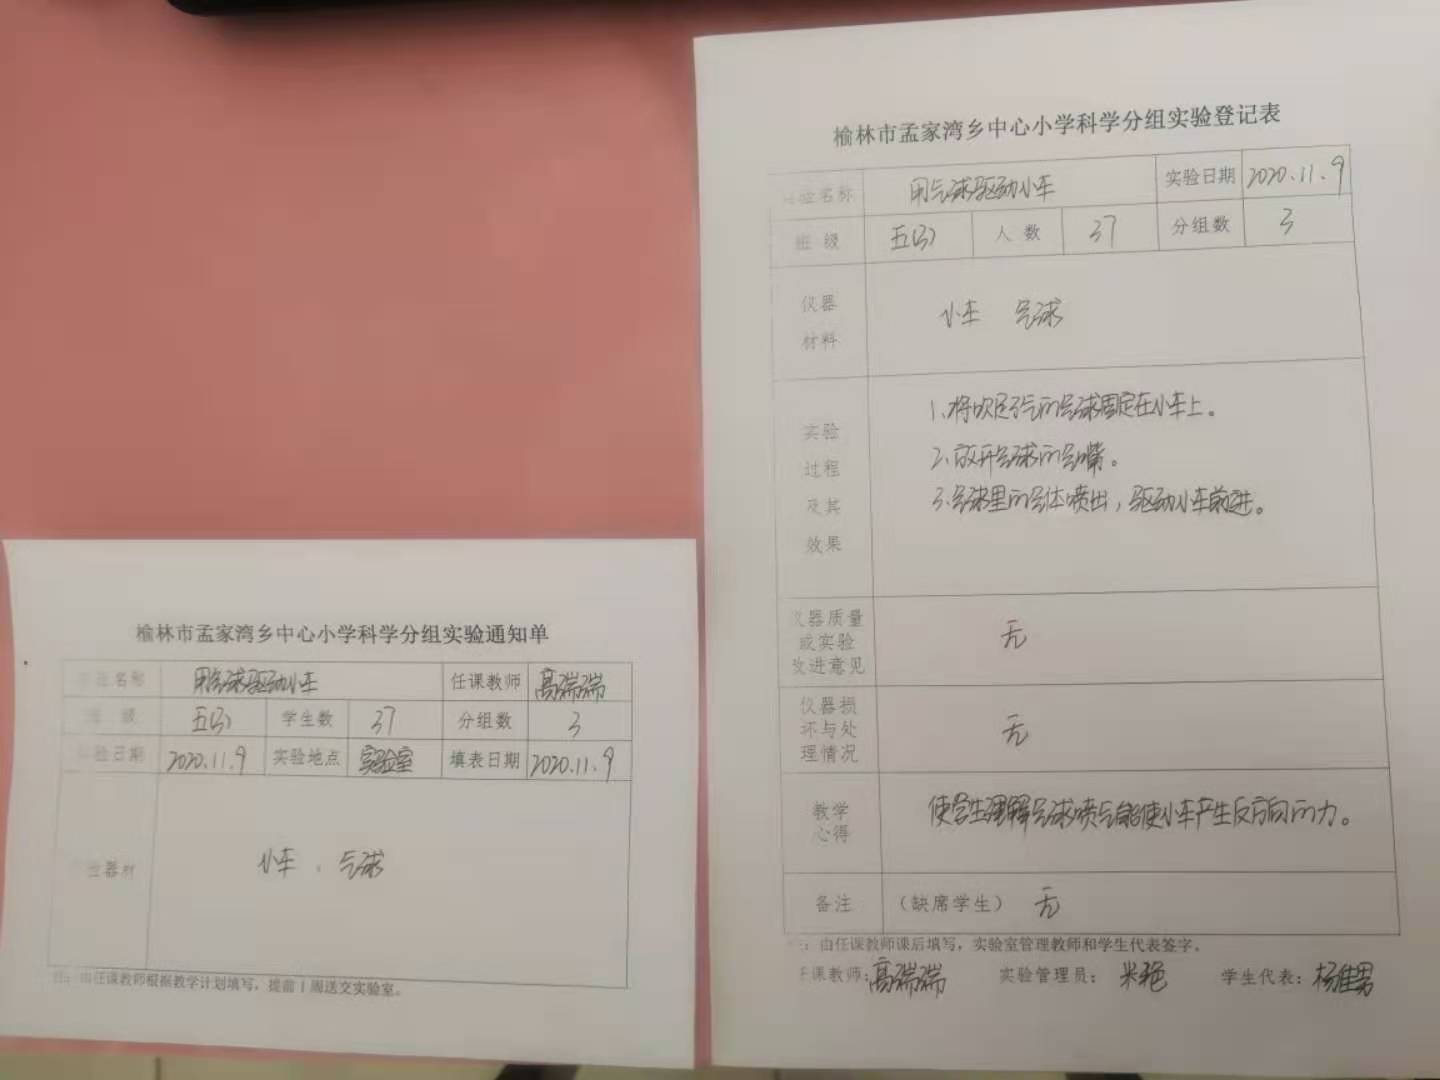 榆林市孟家湾乡中心小学科学分组实验通知单
实验名称 用气球驱动小车 任课教师 高瑞瑞
班 级 五(3) 学生数 37 分组数 3
实验日期 2020.11.9 实验地点 实验室 填表日期 2020.11.9
器材 小车 、气球
注：由任课教师根据教学计划填写，提前1周送交实验室。
榆林市孟家湾乡中心小学科学分组实验登记表
实验名称 用气球驱动小车 实验日期 2020.11.9
班 级 五(3) 人 数 37 分组数 3
仪器
材料
小车 气球
实验
过程
及其
效果
1、将吹足了气的气球固定在小车上。
2、放开气球的气嘴。
3、气球里的气体喷出，驱动小车前进。
仪器质量
或实验
改进意见
无
仪器损
坏与处
理情况
无
教学
心得
使学生理解气球喷气能使小车产生反方向的力。
备注 （缺席学生） 无
注：由任课教师课后填写，实验室管理教师和学生代表签字。
任课教师：高瑞瑞 实验管理员：米艳 学生代表：杨佳男